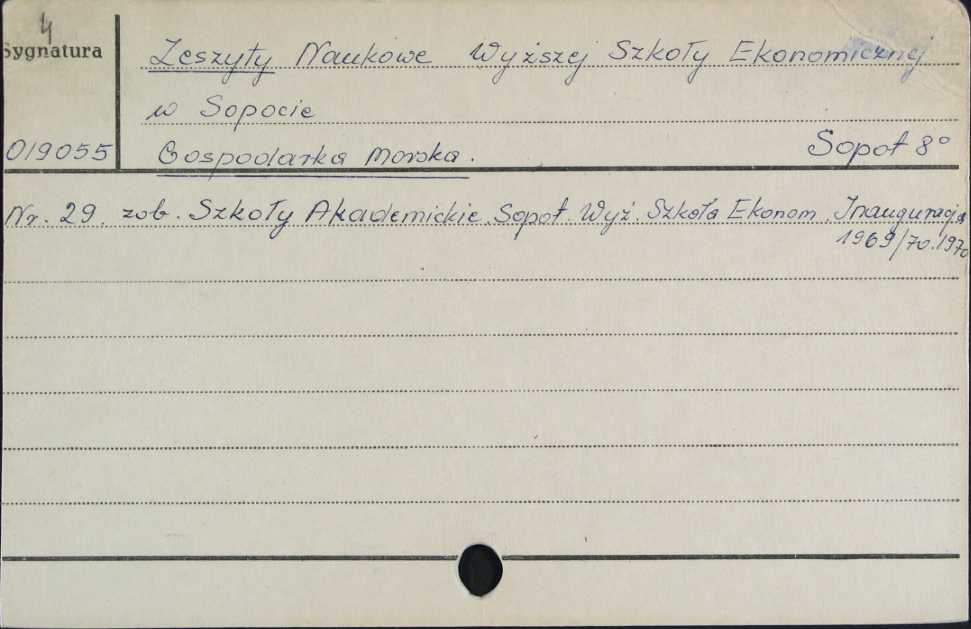 4
Sygnatura
Zeszyty Naukowe Wyższej Szkoły Ekonomicznej
w Sopocie
019055 Gospodarka Morska. Sopot 8°
Nr. 29. zob. Szkoły Akademickie. Sopot. Wyż. Szkoła Ekonom. Inauguracja
1969/70.1970